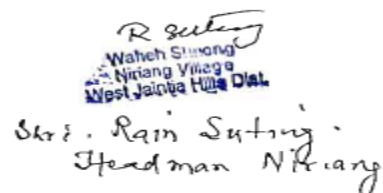 R Suting
Waheh Shnong
Niriang Village
West Jaintia Hills Dist.
Shri. Rain Suting.
Headman Niriang